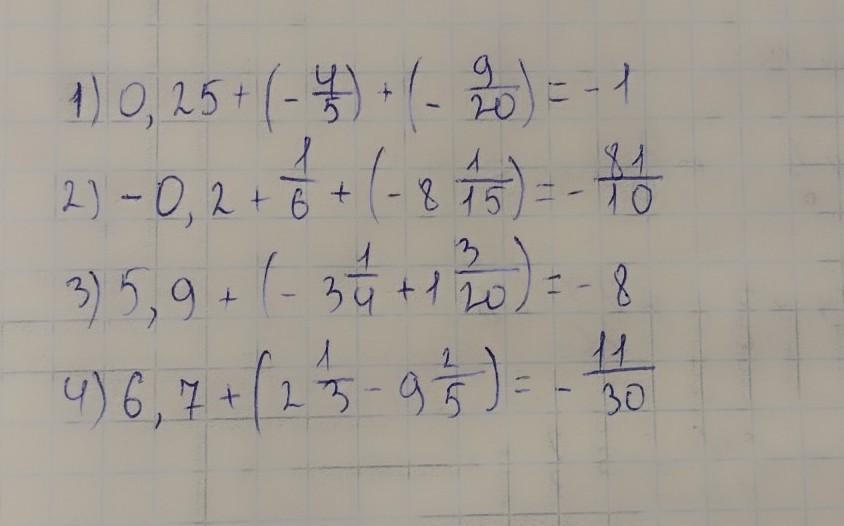 1) 0,25 + (- 4/5) + (- 9/20) = - 1
2) - 0,2 + 1/6 + (- 8 1/15) = - 81/10
3) 5,9 + (- 3 1/4 + 1 3/20) = - 8
4) 6,7 + (2 1/3 - 9 2/5) = - 11/30